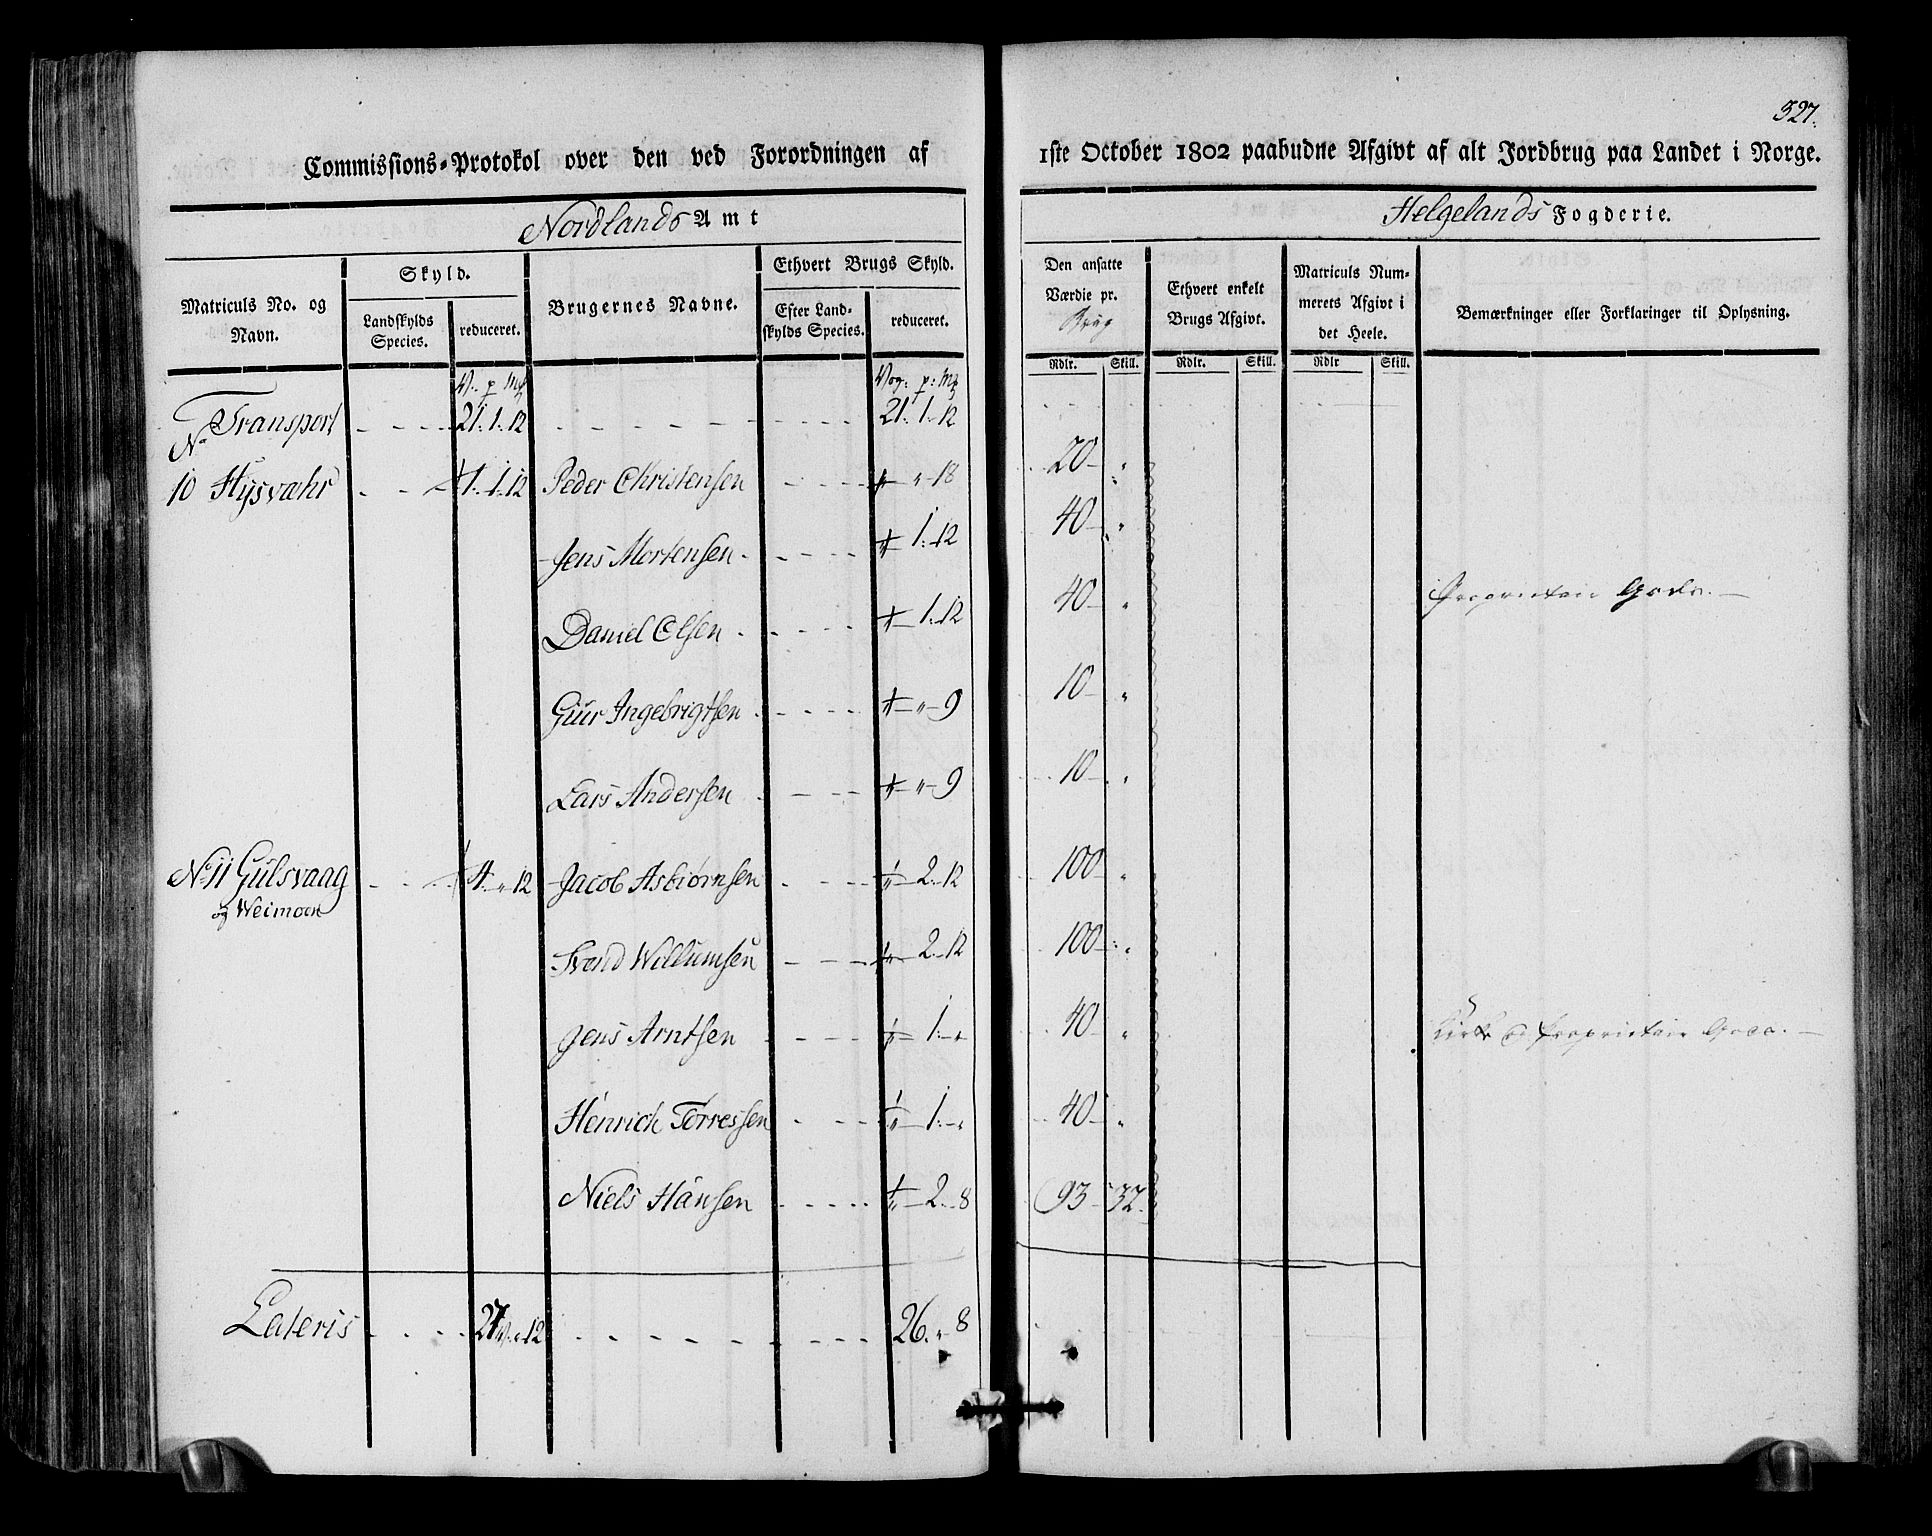 327.
Commissions-Protokol over den ved Forordningen af 1ste October 1802 paabudne Afgivt af alt Jordbrug paa Landet i Norge.
Nordlands Amt
Helgelands Fogderie.
Matriculs No. og Navn.
Skyld.
Landskylds Species.
reduceret.
Brugernes Navne.
Ethvert Brugs Skyld.
Efter Landskylds Species.
reduceret.
Den ansatte Værdie pr. Brug
Ethvert enkelt Brugs Afgivt.
Matriculs Nummerets Afgivt i det Heele.
Bemærkninger eller Forklaringer til Oplysning.
Rdlr. Skill. Rdlr. Skill. Rdlr Skill.
V. p. Mk Vog: p: Mk
Transport 21. 1. 12 21. 1. 12
No
10 Hysvæhr 1. 1. 12 Peder Christensen " 18 20 "
Jens Mortensen 1. 12 40 "
Daniel Olsen 1. 12 40 " Proprietair Gods.
Giur Ingebrigtsen " 9 10 "
Lars Andersen " 9 10 "
No 11 Gulsvaag 4. " 12 Jacob Asbiørnsen 2. 12 100 "
og Weimoen
Svend Willumsen 2. 12 100 "
Jens Arntsen 1. " 40 " Kirke og Proprietair Gods.
Henrich Torressen 1. " 40 "
Niels Hansen 2. 8 93 32.
Lateris 27 " 12 26. " 8